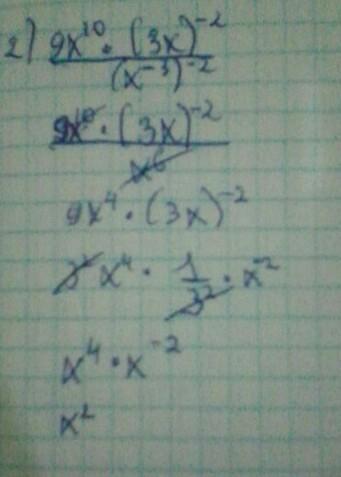 2) 9x¹⁰ · (3x)⁻²
(x⁻³)⁻²
9x¹⁰ · (3x)⁻²
x⁶
9x⁴ · (3x)⁻²
3² x⁴ · 1/3² · x⁻²
x⁴ · x⁻²
x²